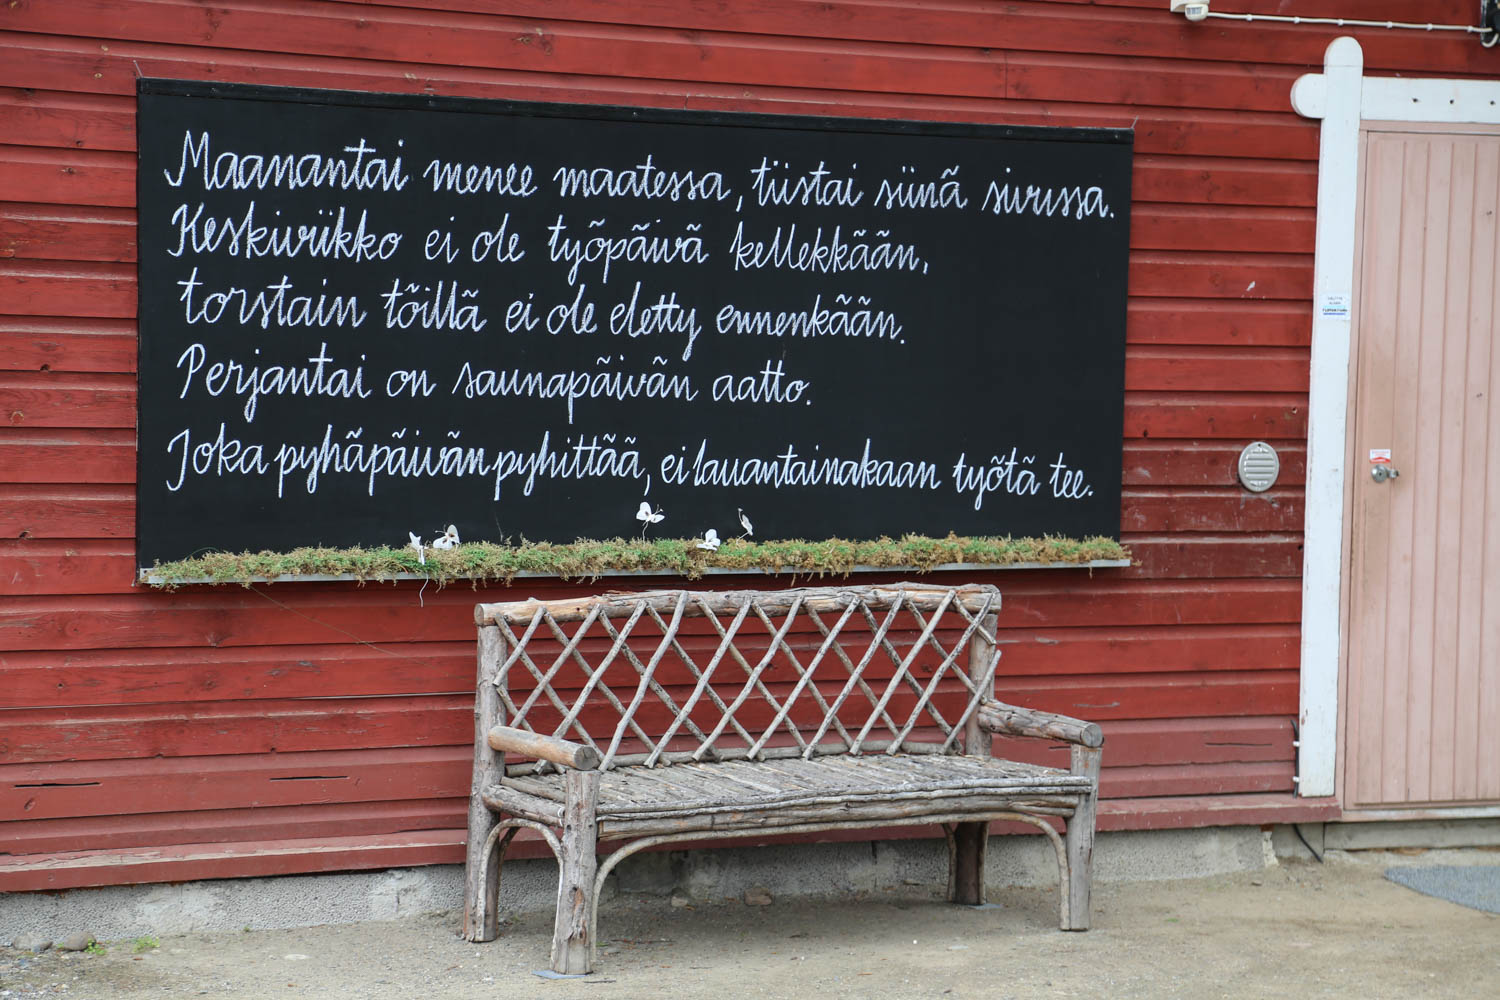 Maanantai menee maatessa, tiistai siinä sivussa.
Keskiviikko ei ole työpäivä kellekkään,
torstain töillä ei ole eletty ennenkään.
Perjantai on saunapäivän aatto.
Joka pyhäpäivän pyhittää, ei lauantainakaan työtä tee.